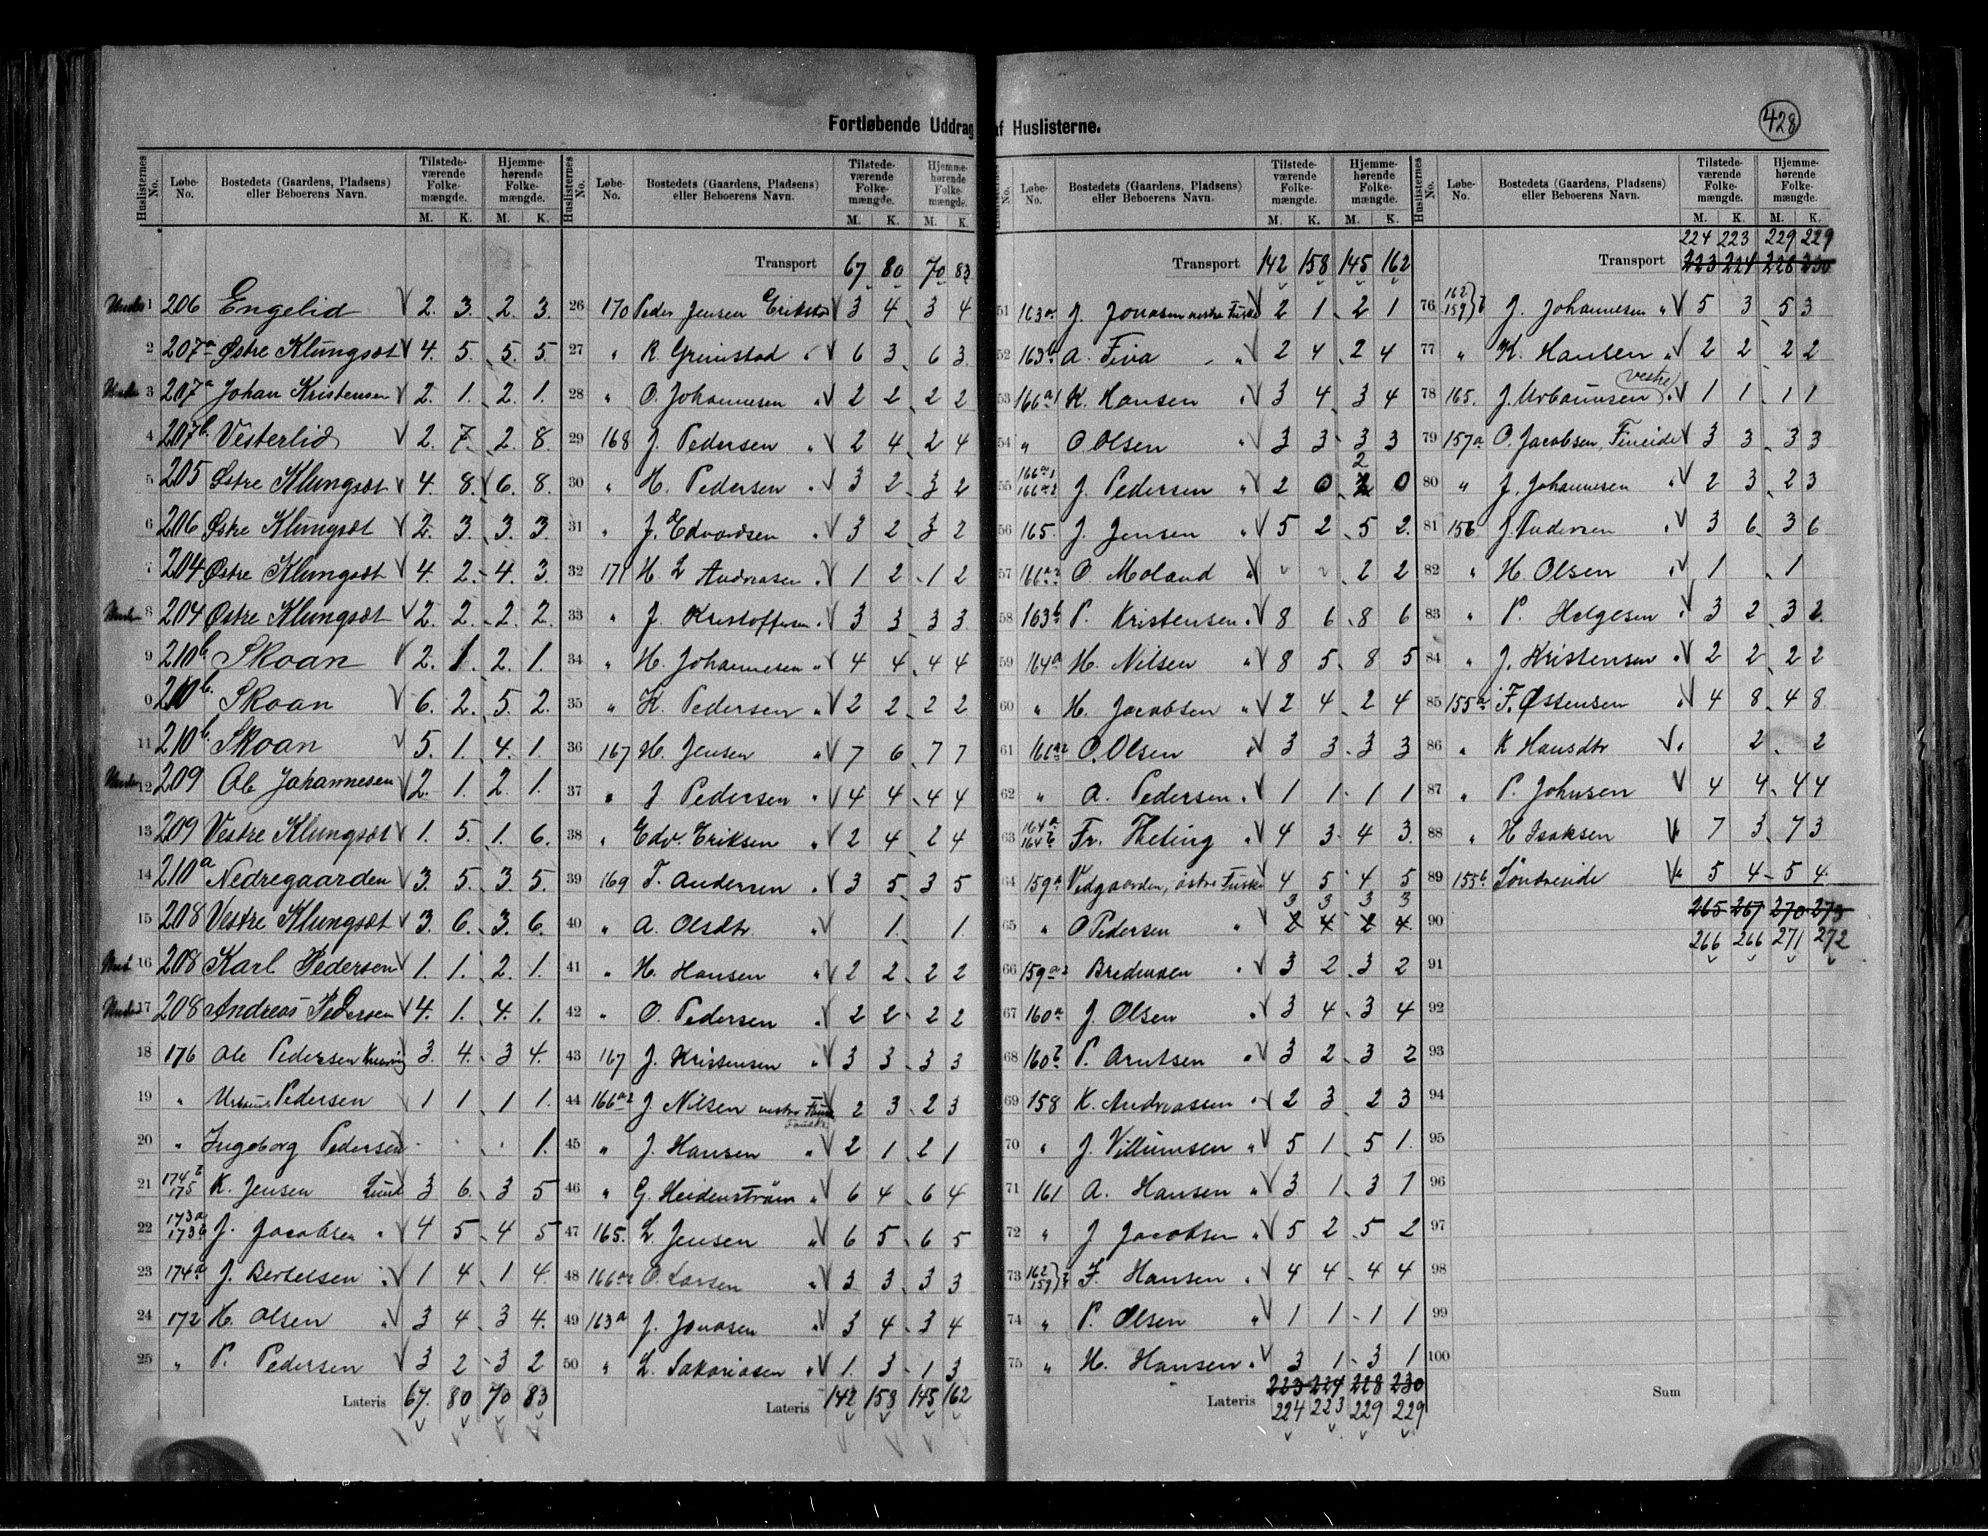 Fortløbende Uddrag af Huslisterne.
428
Huslisternes No. Løbe-No. Bostedets (Gaardens, Pladsens) eller Beboerens Navn. Tilstedeværende Folkemængde. M. K. Hjemmehørende Folkemængde. M. K.
1 206 Engelid 2. 3. 2. 3.
2 207a Østre Klungsøt 4. 5. 5. 5.
3 207a Johan Kristensen 2. 1. 2. 1.
4 207b Vesterlid 2. 7. 2. 8.
5 205 Østre Klungsøt 4. 8. 6. 8.
6 206 Østre Klungsøt 2. 3. 3. 3.
7 204 Østre Klungsøt 4. 2. 4. 3.
8 204 Østre Klungsøt 2. 2. 2. 2.
9 210b Skoan 2. 1. 2. 1.
0 210b. Skoan 6. 2. 5. 2.
11 210b. Skoan 5. 1. 4. 1.
12 209 Ole Johannesen 2. 1. 2. 1.
13 209 Vestre Klungsøt 1. 5. 1. 6.
14 210a Nedregaarden 3. 5. 3. 5.
15 208 Vestre Klungsøt 3. 6. 3. 6.
16 208 Karl Pedersen 1. 1. 2. 1.
17 208 Andreas Pedersen 4. 1. 4. 1.
18 176 Ole Pedersen 3. 4. 3 4.
19 " Pedersen 1 1 1 1.
20 " Ingeborg Pedersen . . . 1.
21 174b 175 K. Jensen Lund 3 6. 3 5
22 173a 173b J. Jacobsen " 4 5 4 5
23 174a J. Bertelsen " 1 4 1 4.
24 172 H. Olsen " 3 4 3 4.
25 " P. Pedersen 3 2 3 2
Lateris 67. 80 70 83
Huslisternes No. Løbe-No. Bostedets (Gaardens, Pladsens) eller Beboerens Navn. Tilstedeværende Folkemængde. M. K. Hjemmehørende Folkemængde. M. K.
Transport 67 80 70 83
26 170 Peder Jensen Erikstad 3 4 3 4
27 " R. Grimstad " 6 3 6 3.
28 " O. Johannesen " 2 2 2 2
29 168 J. Pedersen " 2 4 2 4
30 " H. Pedersen " 3 2 3 2
31 " J. Edvardsen " 3 2 3 2
32 171 H L Andreasen " 1 2 1 2
33 " J. Kristoffersen " 3 3 3 3.
34 " H. Johannesen " 4 4 4 4
35 " K. Pedersen " 2 2 2 2
36 167 H. Jensen " 7 6 7 7
37 " J. Pedersen " 4 4 4 4
38 " Edv. Eriksen " 2 4 2 4
39 169 T. Andersen " 3 5 3 5
40 " A. Olsdtr " 1. 1.
41 " H. Hansen " 2 2 2 2
42 " O. Pedersen " 2 2 2 2
43 167 J. Kristensen " 3 3 3 3
44 166a2 J. Nilsen vestre Fauske 2 3 2 3
45 " J. Hansen " 2 1 2 1
46 " G. Heidenstrøm " 6 4 6 4
47 165. L. Jensen " 6 5 6 5
48 166a2 O. Larsen " 3 3 3 3
49 163a J. Jonasen " 3 4 3 4
50 " L. Sakariasen " 1. 3 1 3
Lateris 142 158 145 162
No. Løbe-No. Bostedets (Gaardens, Pladsens) eller Beboerens Navn. Tilstedeværende Folkemængde. M. K. Hjemmehørende Folkemængde. M. K.
Transport 142 158 145 162
51 163a J. Jonasen vestre Fuske 2 1 2 1
52 163b A. Fiva " 2 4 2 4
53 166a1 K. Hansen " 3 4 3 4
54 " O Olsen " 3 3 3 3
55 166a1 166a2 J. Pedersen " 2 0 2 0
56 165. J. Jensen " 5 2 5 2.
57 166a3 O. Moland " 2 2
58 163b P. Kristensen " 8 6 8 6
59 164a H. Nilsen " 8 5 8 5
60 " H. Jacobsen " 2 4 2 4
61 166a2 O. Olsen " 3 3 3 3
62 " A. Pedersen " 1 1 1 1
63 164a 164b Fr. Heling " 4 3 4 3.
64 159a Vedgaarden, østre Fuske 4 5 4 5
3 3 3 3
65 " O Pedersen " 2 4 2 4
66 159a2 Bredmoen " 3 2 3 2
67 160a J. Olsen " 3 4 3 4
68 160b P. Arntsen " 3 2 3 2
69 158 K. Andreassen " 2 3 2 3
70 " J. Villumsen " 5 1 5 1.
71 161 A. Hansen " 3 1 3 1
72 " J Jacobsen " 5 2 5 2
73 162 159 } F. Hansen " 4 4 4 4
74 " P. Olsen " 1 1 1 1
75 " H. Hansen " 3 1 3 1
223 224 228 230
Lateris 224 223 229 229
Huslisternes No. Løbe-No. Bostedets (Gaardens, Pladsens) eller Beboerens Navn. Tilstedeværende Folkemængde. M. K. Hjemmehørende Folkemængde. M. K.
224 223 229 229
Transport 223 224 228 230
76 162 159 } J. Johannesen " 5 3 5 3
77 " K. Hansen " 2 2 2 2
78 165. J. Urbaunsen vestre " 1 1 1 1
79 157a O. Jacobsen, Fineide 3 3 3 3
80 " J. Johannesen " 2 3 2 3
81 156 J. Pedersen " 3 6 3 6
82 " H. Olsen " 1 1
83 " P. Helgesen " 3 2 3 2.
84 " J. Kristensen " 2 2 2 2
85 155a F. Østensen " 4 8 4 8
86 " K Hansdtr 2 2
87 " P. Johnsen 4 4 4 4
88 " H Isaksen " 7 3 7 3
89 155b Løntreide " 5 4 5 4
90 265 267 270 273
266 266 271 272
91
92
93
94
95
96
97
98
99
100
Sum